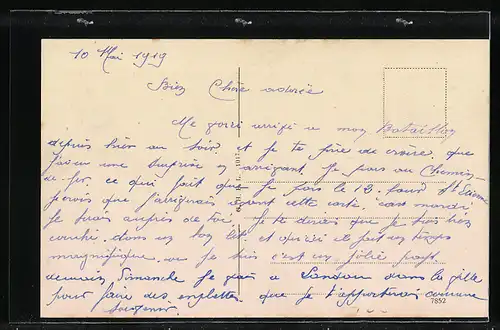 10 Mai 1919
Bien Chère adorée
Me voici arrivé a mon Bataillon
depuis hier au soir. et je te prie de croire que
j'ai eu une surprise en arrivant. Je pars au Chemin
de fer, ce qui fait que je pars le 13. pour St Etienne
je crois que j'arriverai avant cette carte. c'est mardi
je serais auprès de toi. Je te dirais que je suis très
couché. dans un bon lit et qu'ici il fait un temps
magnifique. ou je suis c'est un jolie pays.
demain Dimanche je vais a Landau dans la ville
pour faire des emplettes que je t'apporterais comme
souvenir
7852